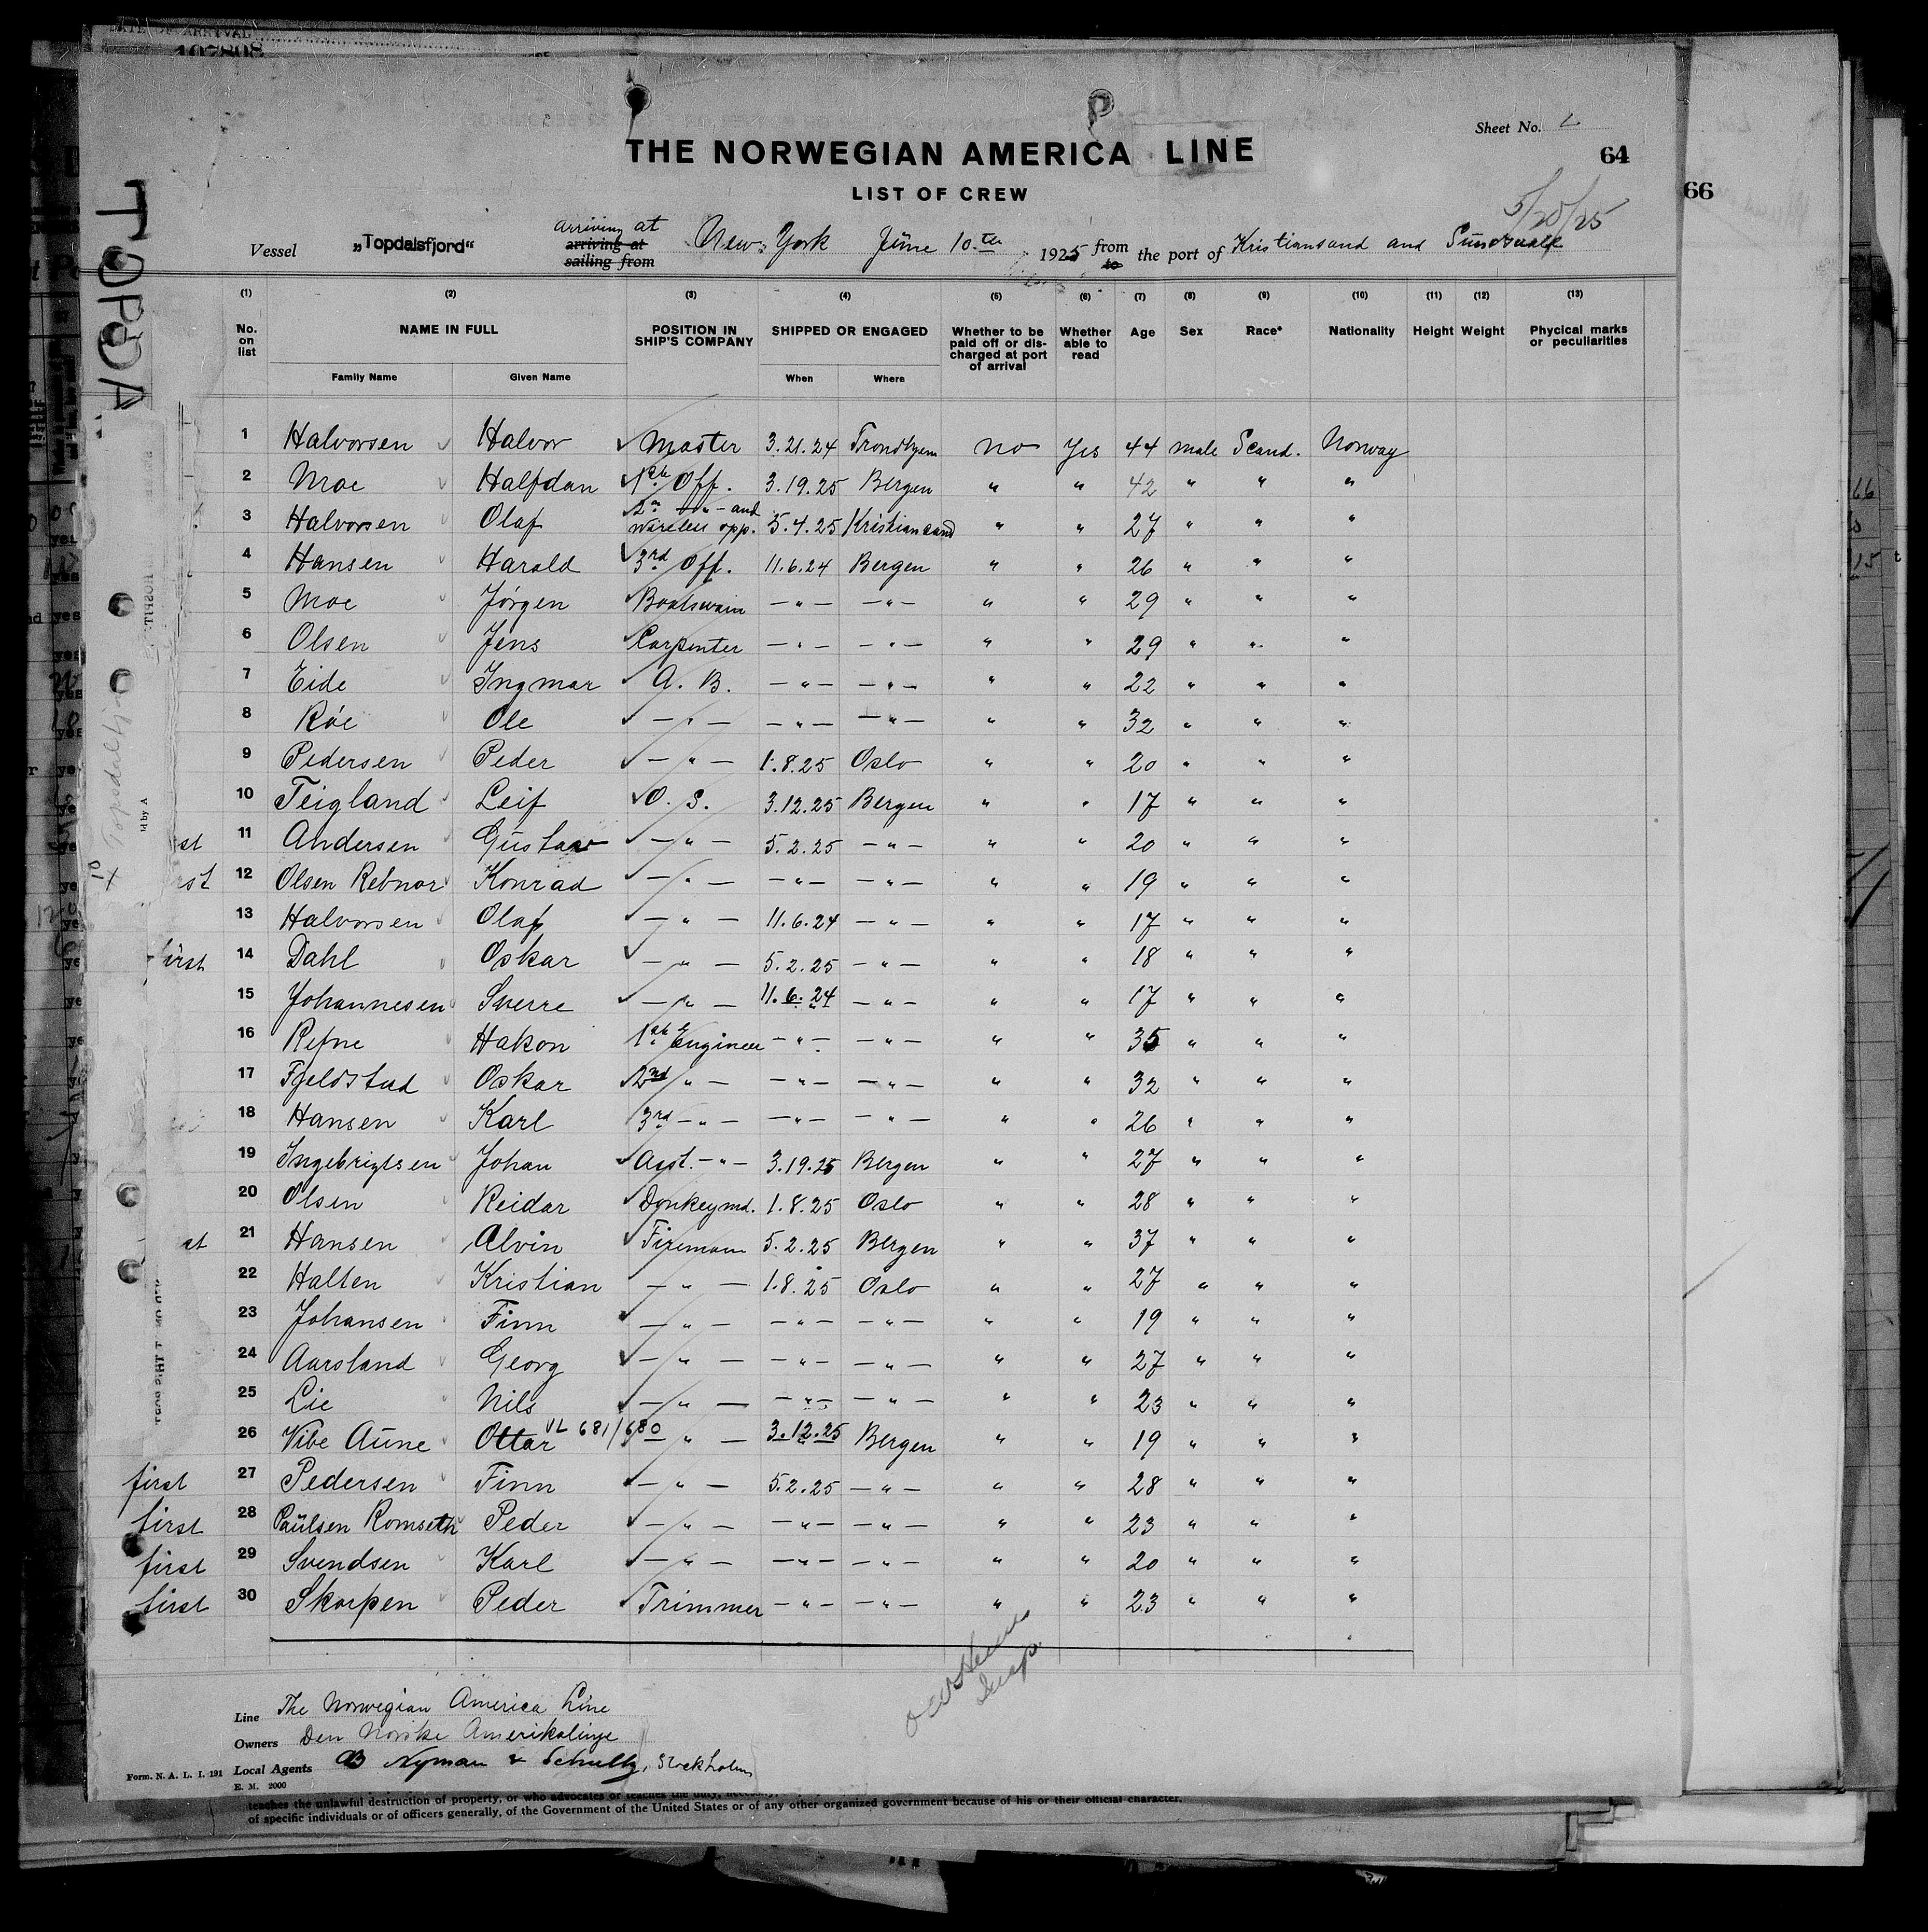 DATE OF ARRIVAL
107808
Sheet No.
THE NORWEGIAN AMERICA LINE
64
66
LIST OF CREW
5/20/25
TOPDA
Vessel „Topdalsfjord“ arriving at New York June 10.th 1925 from the port of Kristiansand and
arriving at
sailing from
to
(1) (2) (3) (4) (5) (6) (7) (8) (9) (10) (11) (12) (13)
No. on list NAME IN FULL POSITION IN SHIP'S COMPANY SHIPPED OR ENGAGED Whether to be paid off or discharged at port of arrival Whether able to read Age Sex Race* Nationality Height Weight Phycical marks or peculiarities
Family Name Given Name When Where
1 Halvorsen Halvor Master 3.21.24 Trondhjem no Yes 44 male Scand. Norway
2 Moe Halfdan 1st Off. 3.19.25 Bergen " " 42 " " "
3 Halvorsen Olaf 2n -"- and wireless opp. 5.4.25 Kristiansand " " 27 " " "
4 Hansen Harald 3rd Off. 11.6.24 Bergen " " 26 " " "
5 Moe Jörgen Boatswain -"- -"- " " 29 " " "
6 Olsen Jens Carpenter -"- -"- " " 29 " " "
7 Eide Ingmar A. B. -"- -"- " " 22 " " "
8 Róe Ole -"- -"- -"- " " 32 " " "
9 Pedersen Peder -"- 1.8.25 Oslo " " 20 " " "
10 Teigland Leif O. S. 3.12.25 Bergen " " 17 " " "
st 11 Andersen Gustav -"- 5.2.25 -"- " " 20 " " "
st 12 Olsen Rebnor Konrad -"- -"- -"- " " 19 " " "
13 Halvorsen Olaf -"- 11.6.24 -"- " " 17 " " "
irst 14 Dahl Oskar -"- 5.2.25 -"- " " 18 " " "
15 Johannesen Sverre -"- 11.6.24 -"- " " 17 " " "
16 Refne Hakon 1st Engineer -"- -"- " " 35 " " "
17 Fjeldstad Oskar 2nd -"- -"- -"- " " 32 " " "
18 Hansen Karl 3rd -"- -"- -"- " " 26 " " "
19 Ingebrigtsen Johan Asst. -"- 3.19.25 Bergen " " 27 " " "
20 Olsen Reidar Donkeymd. 1.8.25 Oslo " " 28 " " "
st 21 Hansen Alvin Fireman 5.2.25 Bergen " " 37 " " "
22 Halten Kristian -"- 1.8.25 Oslo " " 27 " " "
23 Johansen Finn -"- -"- -"- " " 19 " " "
24 Aarsland Georg -"- -"- -"- " " 27 " " "
25 Lie Nils -"- -"- -"- " " 23 " " "
26 Vibe Aune Ottar VL 681/680 -"- 3.12.25 Bergen " " 19 " " "
first 27 Pedersen Finn -"- 5.2.25 -"- " " 28 " " "
first 28 Paulsen Romseth Peder -"- -"- -"- " " 23 " " "
first 29 Svendsen Karl -"- -"- -"- " " 20 " " "
first 30 Skorpen Peder Trimmer -"- -"- " " 23 " " "
Line The Norwegian America Line
Owners Den Norske Amerikalinje
Local Agents AB Nyman & Schultz, Stockholm
Form. N. A. L. I. 191
E. M. 2000
teaches the unlawful destruction of property, or who advocates or teaches the duty, necessity,
of specific individuals or of officers generally, of the Government of the United States or of any other organized government because of his or their official character.